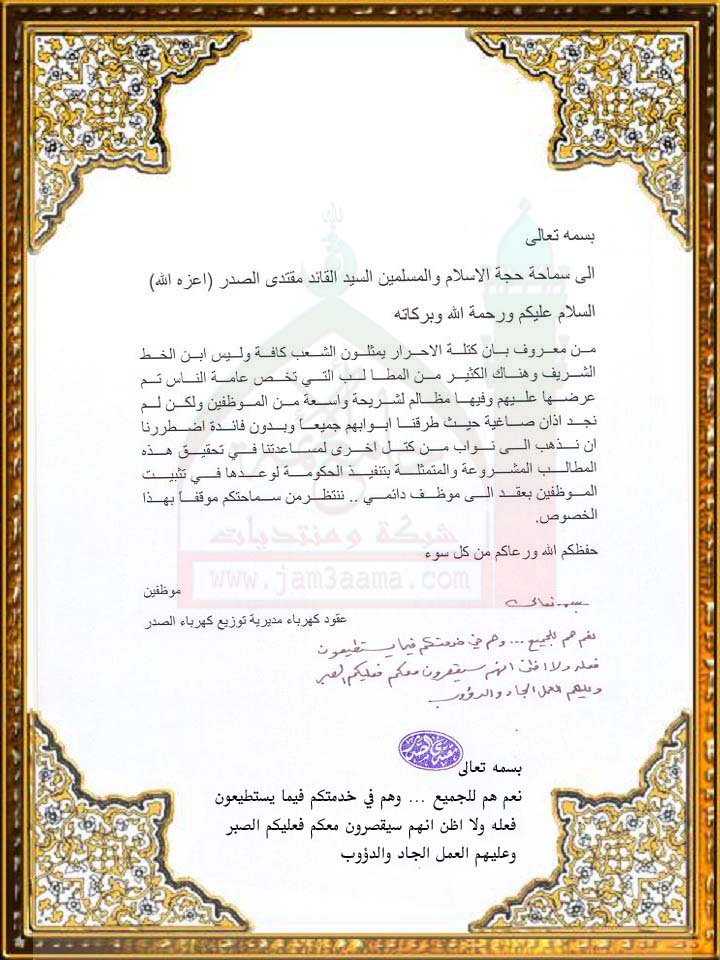 بسمه تعالى
الى سماحة حجة الاسلام والمسلمين السيد القائد مقتدى الصدر (اعزه الله)
السلام عليكم ورحمة الله وبركاته
من معروف بان كتلة الاحرار يمثلون الشعب كافة وليس ابن الخط
الشريف وهناك الكثير من المطا لب التي تخص عامة الناس تم
عرضها عليهم وفيها مظالم لشريحة واسعة من الموظفين ولكن لم
نجد اذان صاغية حيث طرقنا ابوابهم جميعاً وبدون فائدة اضطررنا
ان نذهب الى نواب من كتل اخرى لمساعدتنا في تحقيق هذه
المطالب المشروعة والمتمثلة بتنفيذ الحكومة لوعدها في تثبيت
الموظفين بعقد الى موظف دائمي .. ننتظرمن سماحتكم موقفاً بهذا
الخصوص.
حفظكم الله ورعاكم من كل سوء
موظفين
عقود كهرباء مديرية توزيع كهرباء الصدر
شبكة ومنتديات
www.jam3aama.com
بسمه تعالى
نعم هم للجميع ... وهم في خدمتكم فيما يستطيعون
فعله ولا اظن انهم سيقصرون معكم فعليكم الصبر
وعليهم العمل الجاد والدؤوب
مقتدى الصدر
بسمه تعالى
نعم هم للجميع ... وهم في خدمتكم فيما يستطيعون
فعله ولا اظن انهم سيقصرون معكم فعليكم الصبر
وعليهم العمل الجاد والدؤوب